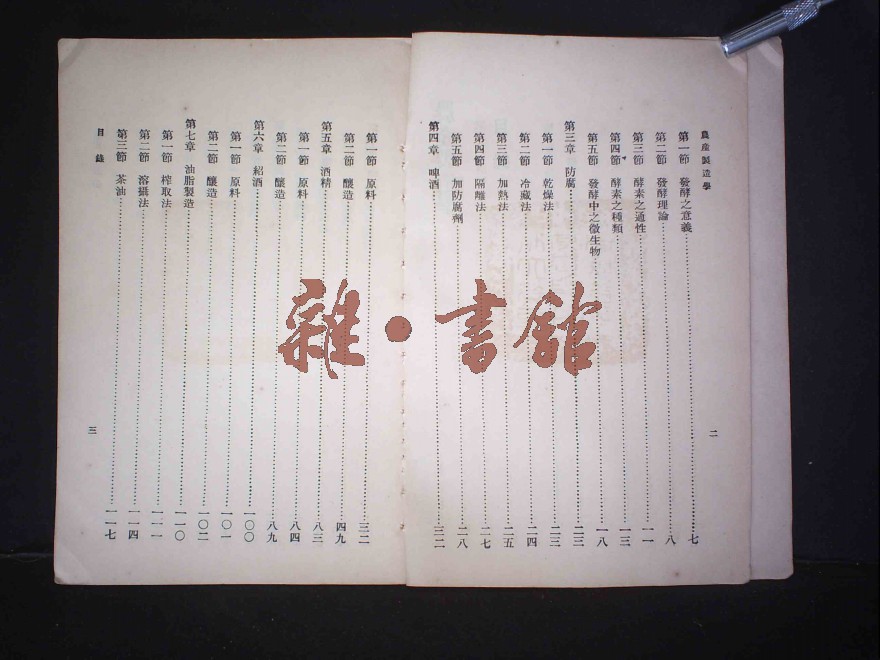 農產製造學
第一節 發酵之意義 七
第二節 發酵理論 八
第三節 酵素之通性 一一
第四節 酵素之種類 一三
第五節 發酵中之微生物 一八
第三章 防腐 二三
第一節 乾燥法 二三
第二節 冷藏法 二四
第三節 加熱法 二五
第四節 隔離法 二七
第五節 加防腐劑 二八
第四章 啤酒 三二
二
第一節 原料 三二
第二節 釀造 四九
第五章 酒精 八三
第一節 原料 八四
第二節 釀造 八九
第六章 紹酒 一〇〇
第一節 原料 一〇一
第二節 釀造 一〇二
第七章 油脂製造 一一〇
第一節 榨取法 一一一
第二節 溶攝法 一一四
第三節 茶油 一一七
目錄
三
雜·書館